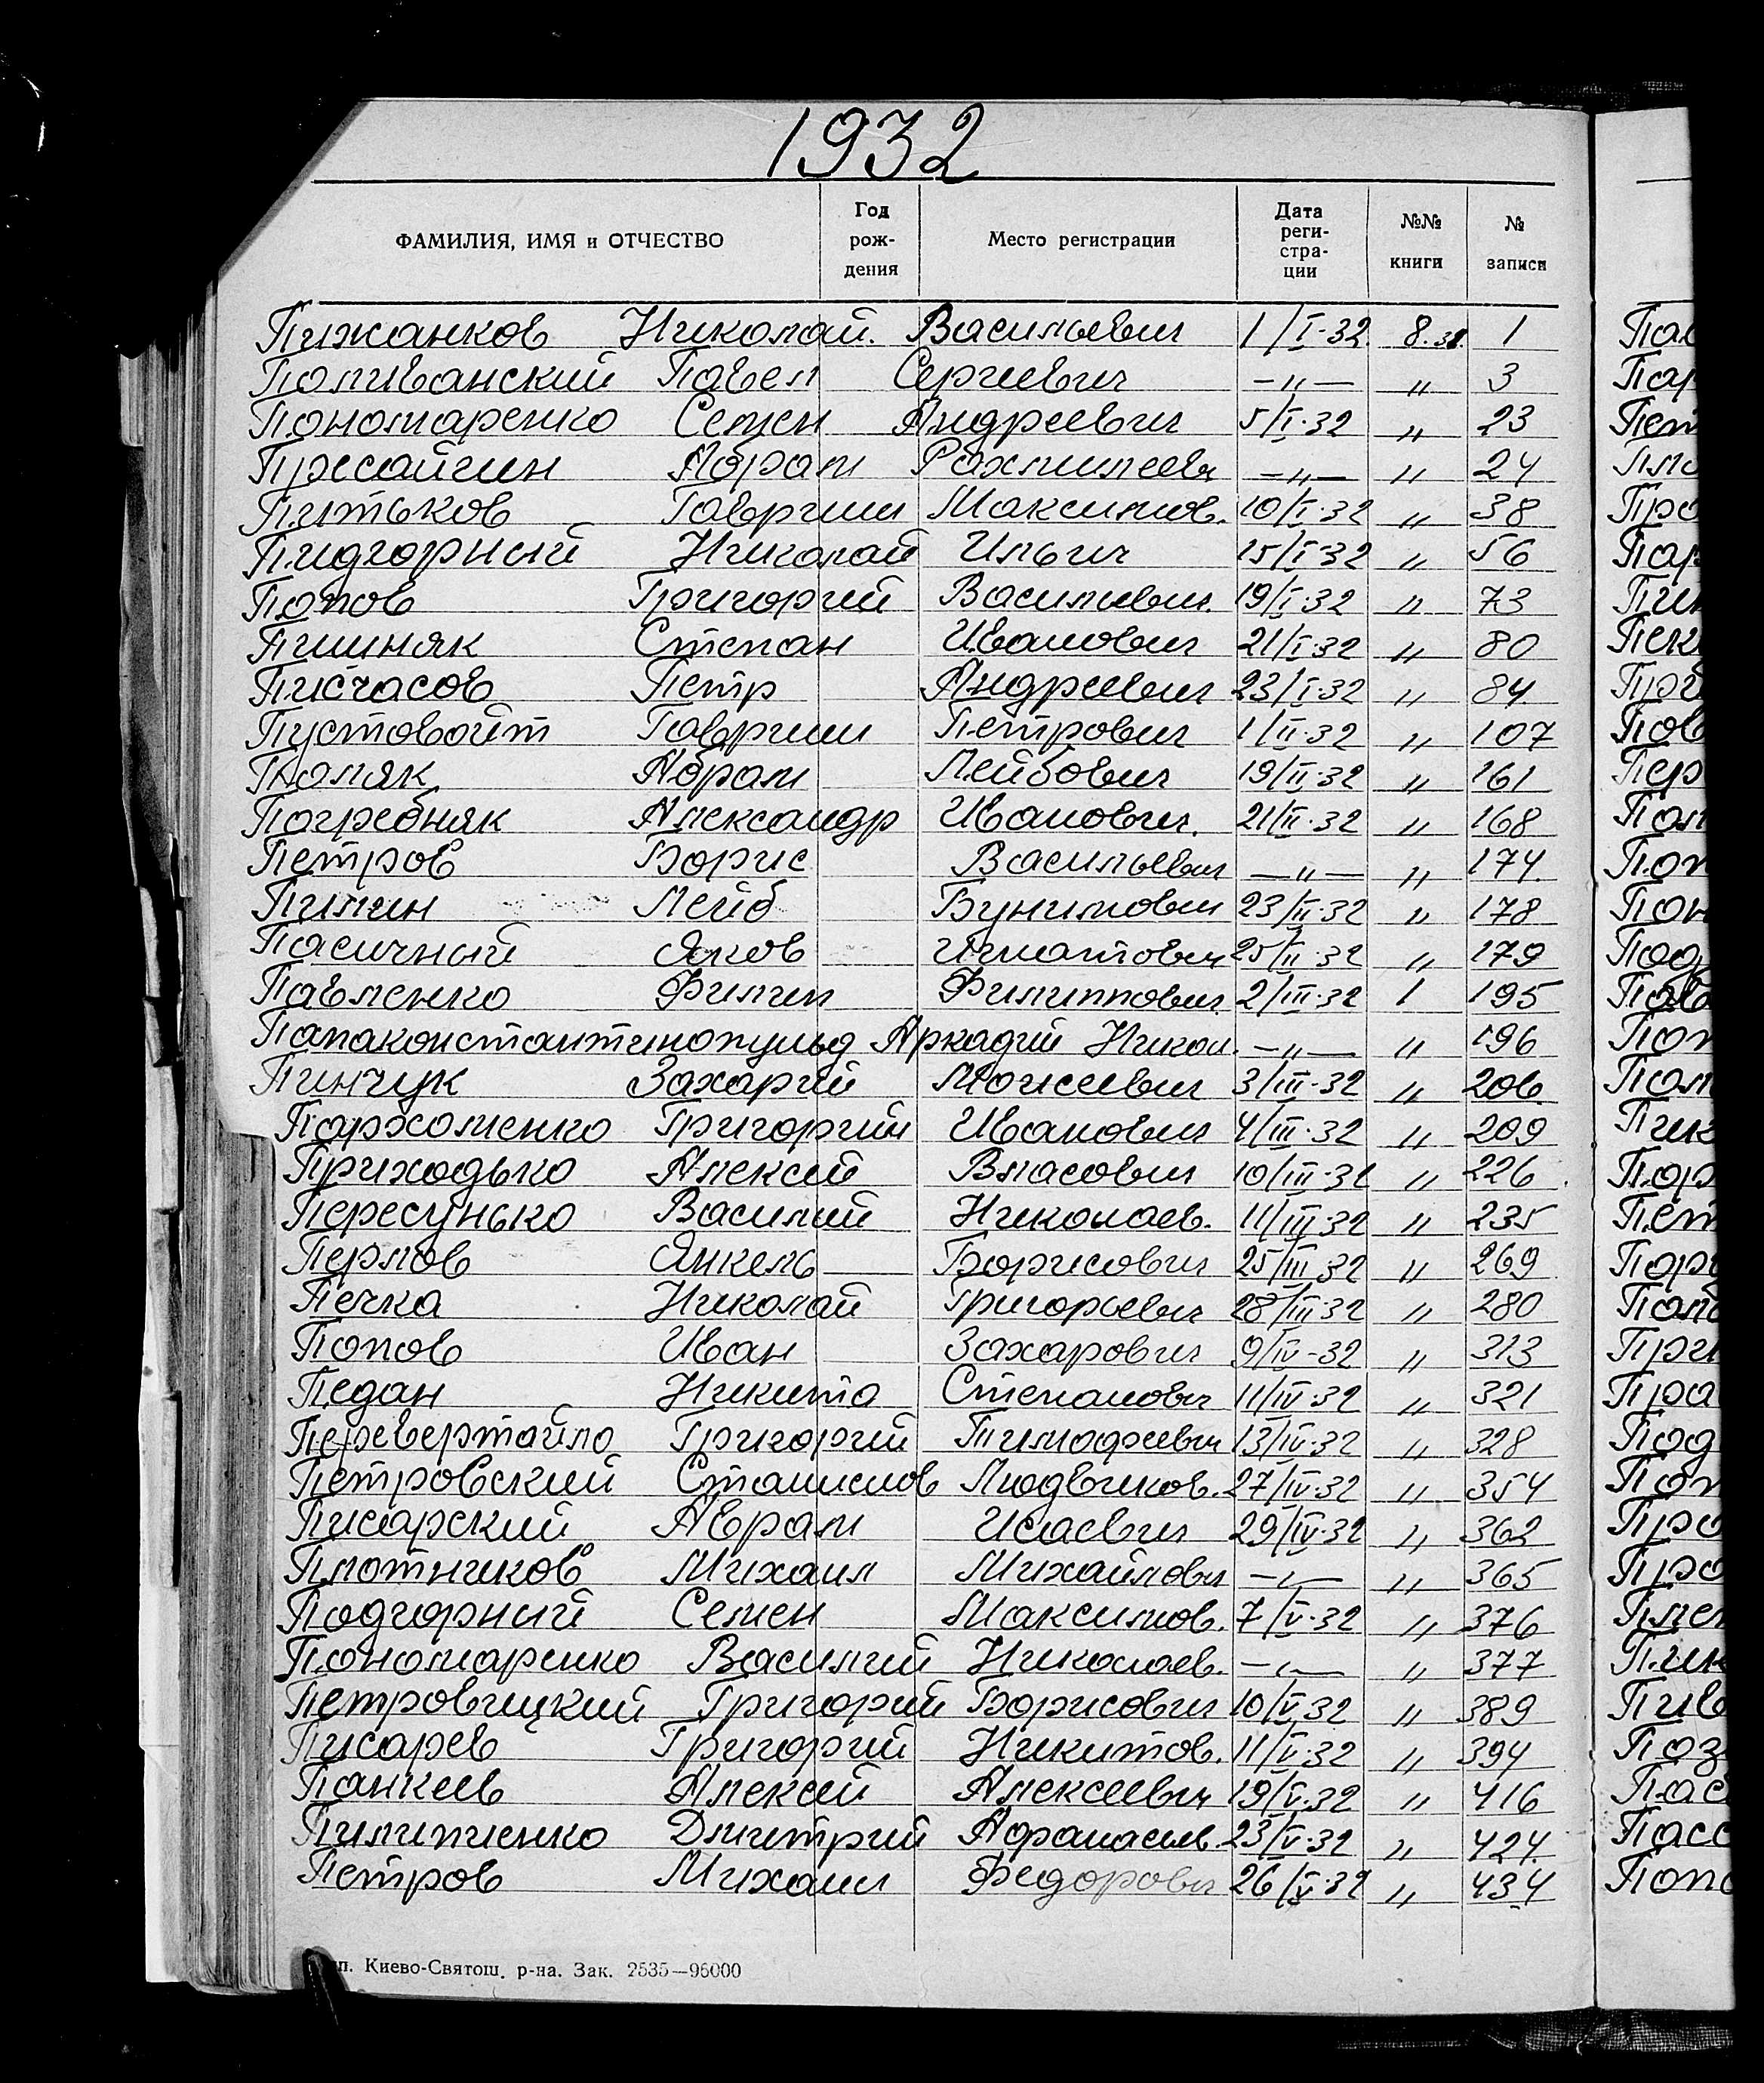 1932
ФАМИЛИЯ, ИМЯ и ОТЧЕСТВО Год рождения Место регистрации Дата регистрации №№ книги № записи
Пижанков Николай. Васильевич 1/I·32. 8.32. 1
Поливанский Павел Сергиевич —〃— 〃 3
Пономаренко Семен Андреевич 5/I·32 〃 23
Пресайгин Абрам Рахмилеев —〃— 〃 24
Питьков Гавриил Максимов. 10/I·32 〃 38
Пидгорный Николай Ильич 15/I·32 〃 56
Попов Григорий Василиевич. 19/I·32 〃 73
Пишняк Степан Иванович 21/I·32 〃 80
Писчасов Петр Андреевич 23/I·32 〃 84.
Пустовойт Гавриил Петрович 1/II·32 〃 107
Поляк Абрам Лейбович 19/II·32 〃 161
Погребняк Александр Иванович. 21/II·32 〃 168
Петров Борис Васильевич —〃— 〃 174.
Пилин Лейб Бунимович 23/II·32 〃 178
Пасичный Яков Игнатович 25/II·32 〃 179
Павленко Филип Филиппович. 2/III·32 1 195
Папаконстантинопульд Аркадий Никол. —〃— 〃 196
Пинчук Захарий Моисеевич 3/III·32 〃 206.
Пархоменко Григорий Иванович 4/III·32 〃 209
Приходько Алексей Власович 10/III·32 〃 226
Пересунько Василий Николаев. 11/III·32 〃 235
Перлов Янкель Борисович 25/III·32 〃 269
Печка Николай Григорьевич 28/III·32 〃 280
Попов Иван Захарович 9/IV-32 〃 313
Педан Никита Степанович 11/IV·32 〃 321
Перевертайло Григорий Тимофеевич 13/IV·32 〃 328
Петровский Станислов Людвиков. 27/IV·32 〃 354
Писарский Аврам Исаевич 29/IV·32 〃 362
Плотников Михаил Михайлович —〃— 〃 365
Подгорный Семен Максимов. 7/V·32 〃 376
Пономаренко Василий Николаев. —〃— 〃 377
Петровицкий Григорий Борисович 10/V·32 〃 389
Писарев Григорий Никитов. 11/V·32 〃 394
Панкеев Алексей Алексеевич 19/V·32 〃 416
Пилипченко Дмитрий Афанасьев. 23/V·32 〃 424.
Петров Михаил Федорович 26/V·32 〃 434
п. Киево-Святош. р-на. Зак. 2535—95000